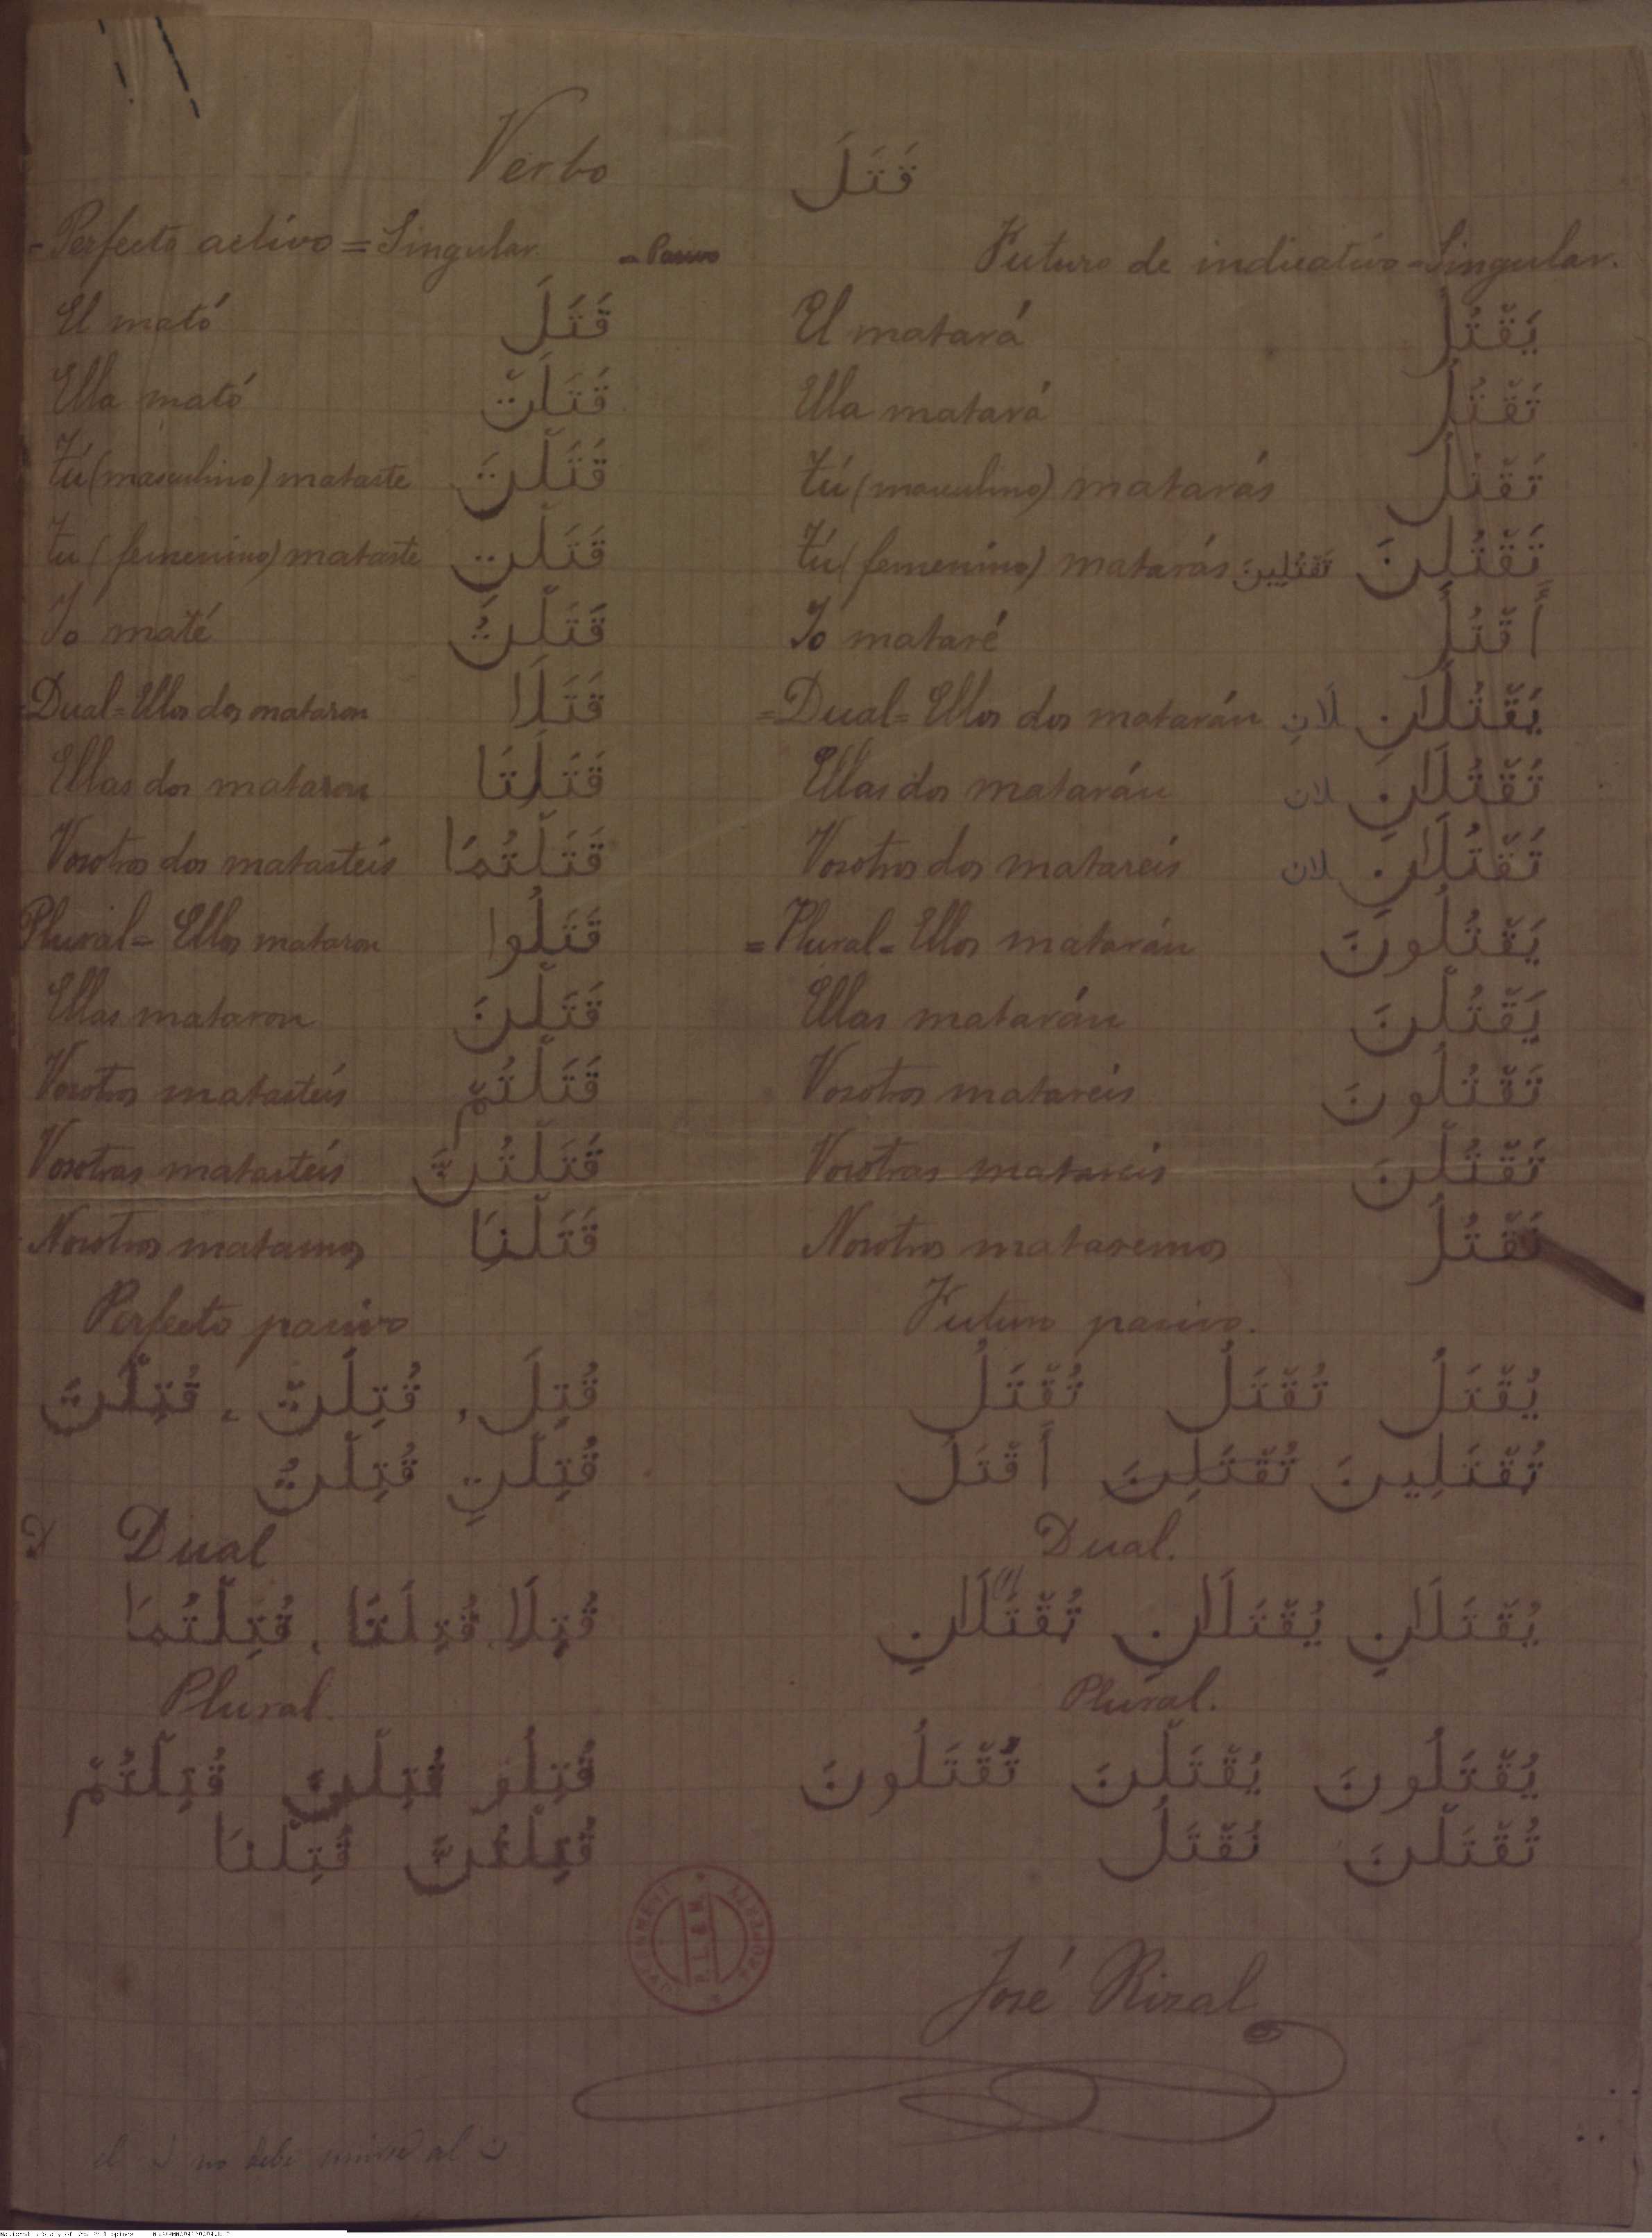 Verbo قَتَلَ
- Perfecto activo = Singular. = Pasivo
El mató قَتَلَ
Ella mató قَتَلَتْ
Tú (masculino) mataste قَتَلْتَ
Tu (femenino) mataste قَتَلْتِ
Yo maté قَتَلْتُ
= Dual = Ellos dos mataron قَتَلَا
Ellas dos mataron قَتَلَتَا
Vosotros dos matasteis قَتَلْتُمَا
Plural = Ellos mataron قَتَلُوا
Ellas mataron قَتَلْنَ
Vosotros matasteis قَتَلْتُمْ
Vosotras matasteis قَتَلْتُنَّ
Nosotros matamos قَتَلْنَا
Perfecto pasivo
قُتِلَ، قُتِلَتْ، قُتِلْتَ
قُتِلْتِ قُتِلْتُ
D Dual
قُتِلَا، قُتِلَتَا، قُتِلْتُمَا
Plural.
قُتِلُو قُتِلْنَ قُتِلْتُمْ
قُتِلْتُنَّ قُتِلْنَا
Futuro de indicativo = Singular.
El matará يَقْتُلُ
Ella matará تَقْتُلُ
Tú (masculino) matarás تَقْتُلُ
Tú (femenino) matarás تَقْتُلِينَ تَقْتُلِنَ
Yo mataré أَقْتُلُ
= Dual = Ellos dos matarán لَانِ يَقْتُلَانِ
Ellas dos matarán لان تَقْتُلَانِ
Vosotros dos matareis لان تَقْتُلَانِ
= Plural = Ellos matarán يَقْتُلُونَ
Ellas matarán يَقْتُلْنَ
Vosotros matareis تَقْتُلُونَ
Vosotras matareis تَقْتُلْنَ
Nosotros mataremos نَقْتُلُ
Futuro pasivo.
يُقْتَلُ تُقْتَلُ تُقْتَلُ
تُقْتَلِينَ تُقْتَلِنَ أُقْتَلُ
Dual.
يُقْتَلَانِ يُقْتَلَانِ تُقْتَلَانِ
Plural.
يُقْتَلُونَ يُقْتَلْنَ تُقْتَلُونَ
تُقْتَلْنَ نُقْتَلُ
P.L.&M.
José Rizal
el ل no debe unirse al ن